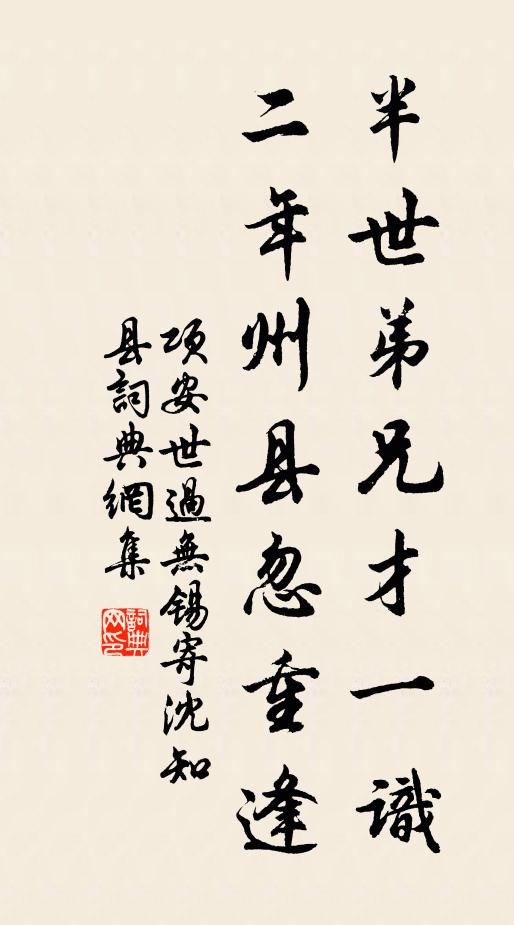 半世弟兄才一識
二年州县忽重逢
项安世過無锡寄沈知
县詞典網集
詞典
网印